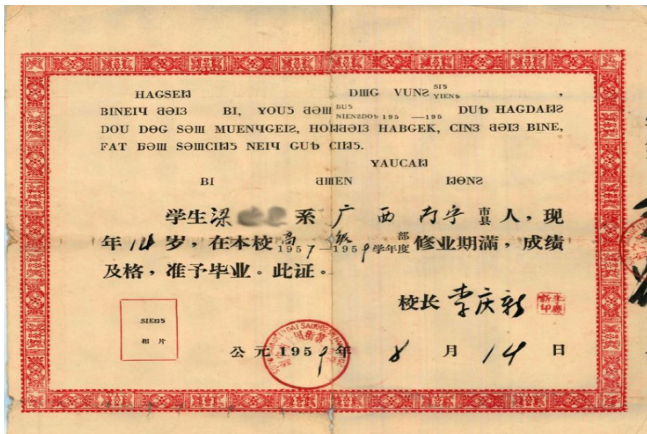 HAGSEŊ DƜG VUNƨ SIƽ YIENƨ ,
BINEIЧ ƋƏIЗ BI, YOUƽ ƋƏƜ BUƽ NIENƨDOƄ 195 —195 DUƄ HAGDAŊƨ
DOU DɵG SƏƜ MUENЧGEIƨ, ƋƏIЗ HABGEK, CINЗ ƋƏIЗ BINE,
FAT ƂƏƜ SƏƜCIŊƽ NEIЧ GUƄ CIŊƽ.
YAUCAŊ
BI ƜEN ŊONƨ
学生梁 系广西 市县人，现
年14岁，在本校高级部 1957—1959学年度修业期满，成绩
及格，准予毕业。此证。
校长 李庆新
SIEŊƽ
相片
公元1959年 8 月 14 日